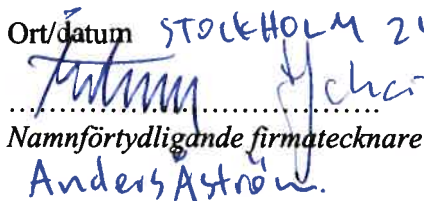 Ort/datum STOCKHOLM 24
Namnförtydligande firmatecknare
Anders Åström.